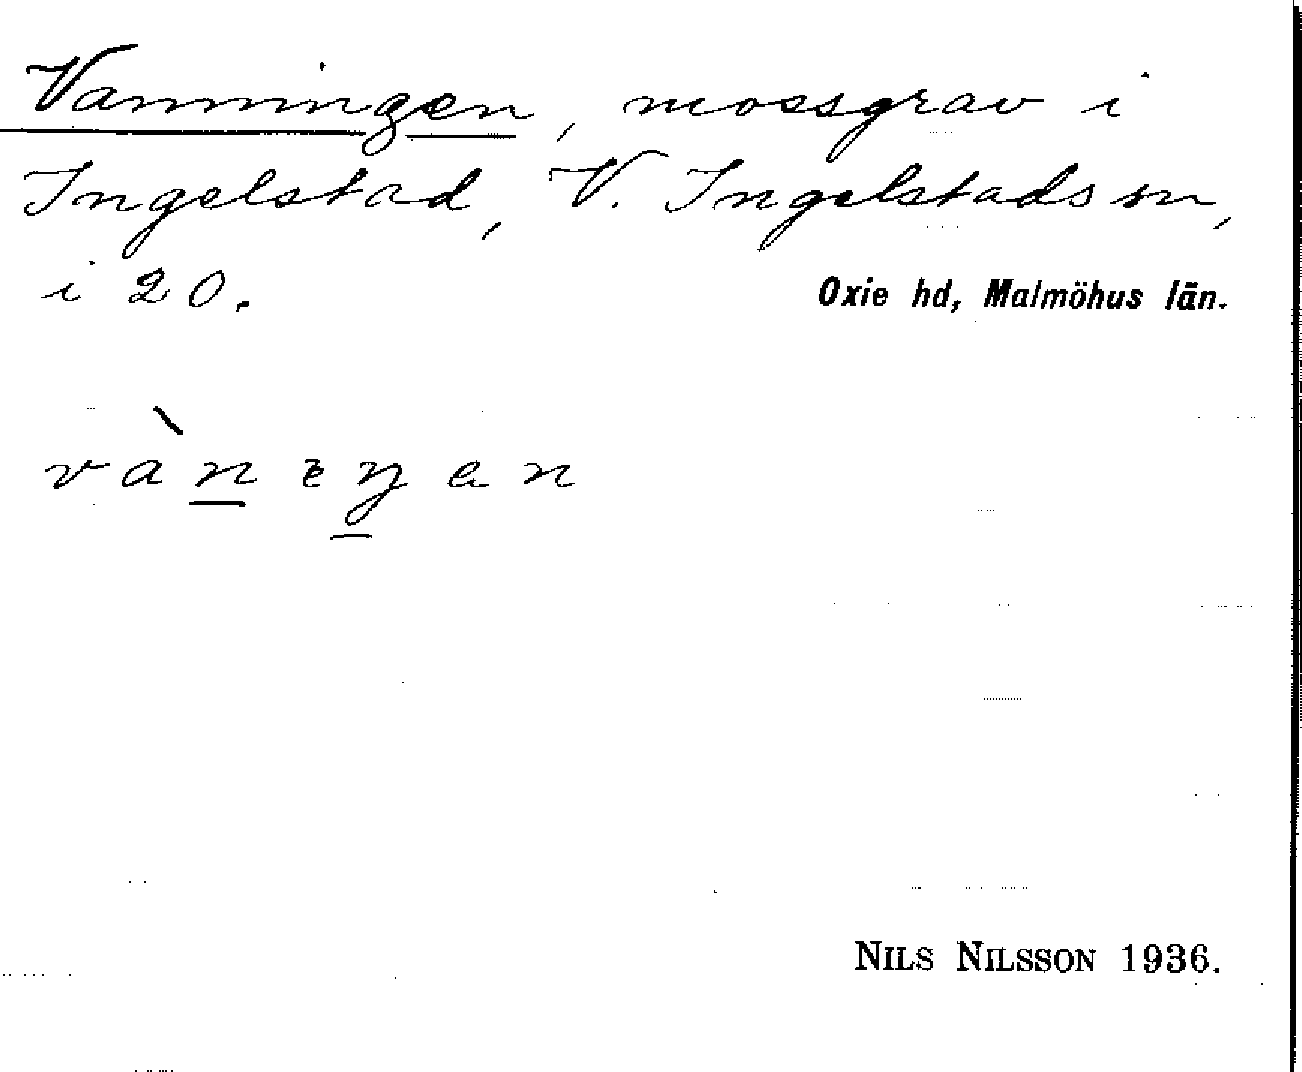 Vanningen, mossgrav i
Ingelstad, V. Ingelstads sn,
i 20.
Oxie hd, Malmöhus län.
vàneŋen
NILS NILSSON 1936.